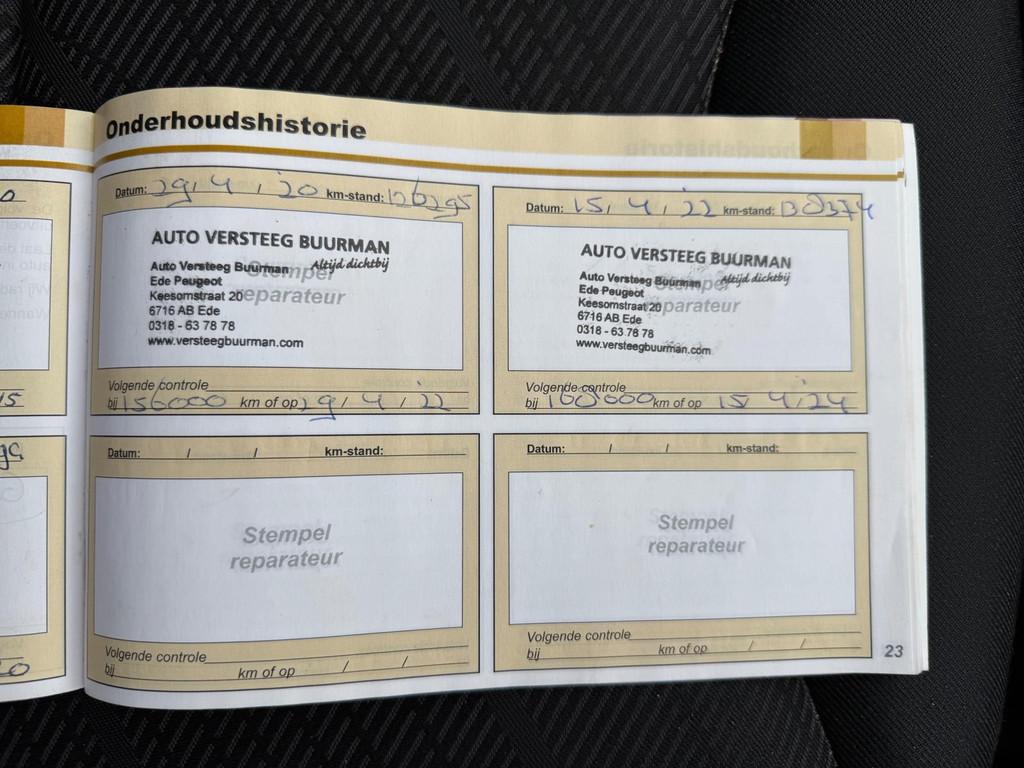 Onderhoudshistorie
Datum: 29 / 4 / '20 km-stand: 126295
AUTO VERSTEEG BUURMAN
Altijd dichtbij
Auto Versteeg Buurman
Ede Peugeot
Keesomstraat 20
6716 AB Ede
0318 - 63 78 78
www.versteegbuurman.com
Stempel
reparateur
Volgende controle
bij 156000 km of op 29 / 4 / '22
Datum: 15 / 4 / '22 km-stand: 130374
AUTO VERSTEEG BUURMAN
Altijd dichtbij
Auto Versteeg Buurman
Ede Peugeot
Keesomstraat 20
6716 AB Ede
0318 - 63 78 78
www.versteegbuurman.com
Stempel
reparateur
Volgende controle
bij 160000 km of op 15 / 4 / '24
Datum: / / km-stand:
Stempel
reparateur
Volgende controle
bij km of op / /
Datum: / / km-stand:
Stempel
reparateur
Volgende controle
bij km of op / /
23